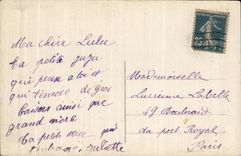 Ma chère Lulu
Ta petite zuzu
qui pense a toi et
qui t'envoie de gros
baisers ainsi que
grand mère
Ta petite soeur qui
t'embrasse Juliette
25
Mademoiselle
Lucienne Labelle
49 Boulevard
du port Royal
Paris